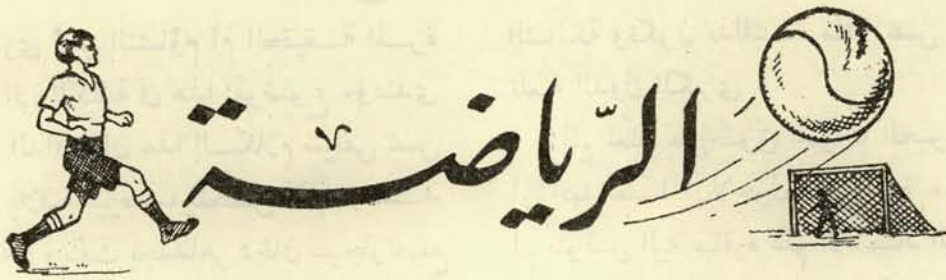 الرّياضة